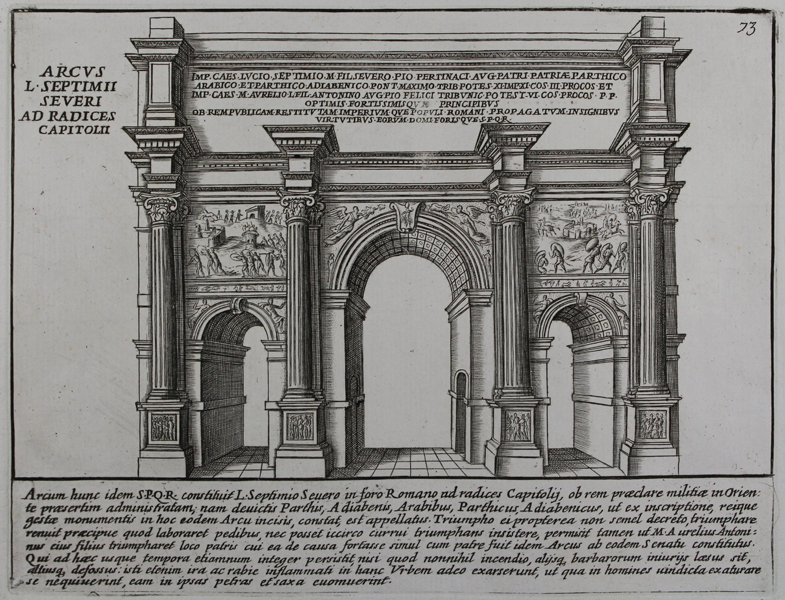 73
ARCVS
L·SEPTIMII
SEVERI
AD RADICES
CAPITOLII
IMP·CAES·LVCIO·SEPTIMIO·M·FIL·SEVERO·PIO·PERTINACI·AVG·PATRI·PATRIÆ·PARTHICO
ARABICO·ET·PARTHICO·ADIABENICO·PONT·MAXIMO·TRIB·POTES·XI·IMP·XI·COS·III·PROCOS·ET
IMP·CAES·M·AVRELIO·L·FIL·ANTONINO·AVG·PIO·FELICI·TRIBVNIC·POTEST·VI·COS·PROCOS·P·P·
OPTIMIS·FORTISSIMISQVE PRINCIPIBVS
OB·REMPVBLICAM·RESTITVTAM·IMPERIVMQVE·POPVLI·ROMANI·PROPAGATVM·INSIGNIBVS
VIRTVTIBVS·EORVM·DOMI·FORISQVE·S·P·Q·R·
Arcum hunc idem S·P·Q·R· constituit L·Septimio Seuero in foro Romano ad radices Capitolij, ob rem præclare militiæ in Orien:
te præsertim administratam, nam deuictis Parthis, Adiabenis, Arabibus, Parthicus, Adiabenicus, ut ex inscriptione, reique
gestæ monumentis in hoc eodem Arcu incisis, constat est appellatus. Triumpho ei propterea non semel decreto, triumphare
renuit præcipue quod laboraret pedibus, nec posset iccirco currui triumphans insistere, permisit tamen ut M·Aurelius Antoni:
nus eius filius triumpharet loco patris cui ea de causa fortasse simul cum patre fuit idem Arcus ab eodem Senatu constitutus·
Qui ad hæc usque tempora etiamnum integer persistit, nisi quod nonnihil incendio, alijsq, barbarorum iniurijs læsus sit,
altiusq, defossus: isti etenim ira ac rabie inflammati in hanc Vrbem adeo exarserunt, ut qua in homines uindicta exaturare
se nequiuerint, eam in ipsas petras et saxa euomuerint·